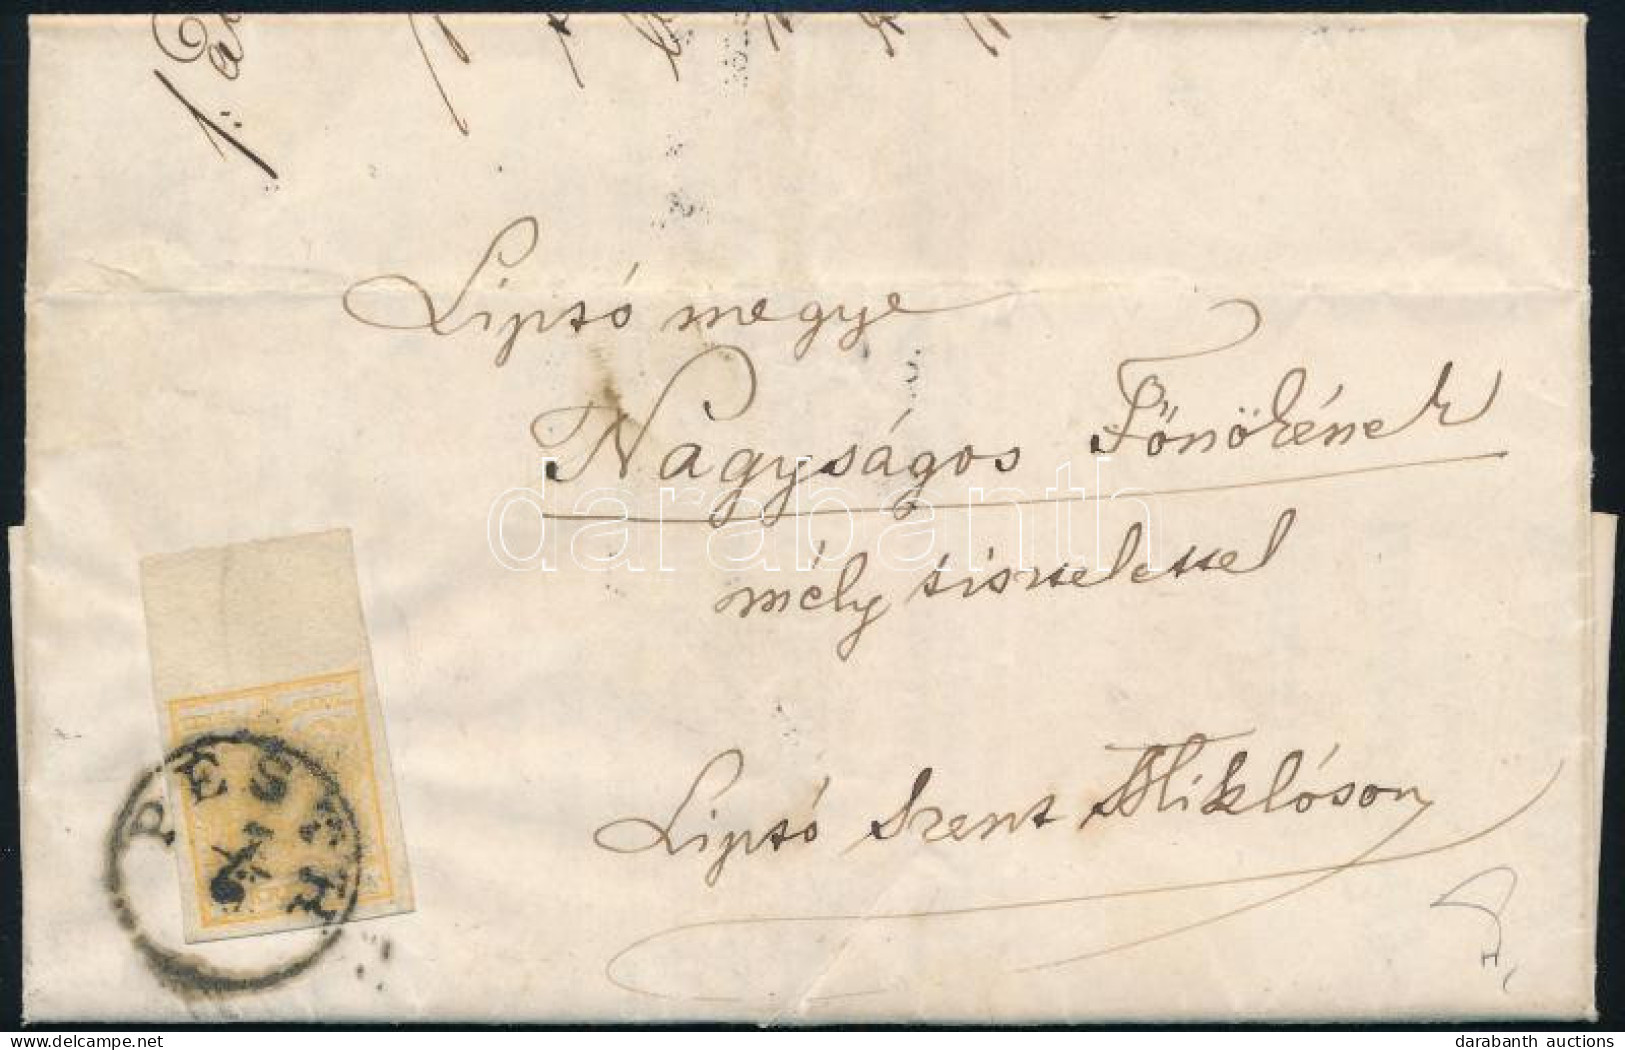 Liptó megye
Nagyságos Főnökének
mély tisztelettel
Liptó Szent Miklóson
PESTH
darabanth
darabanth auctions